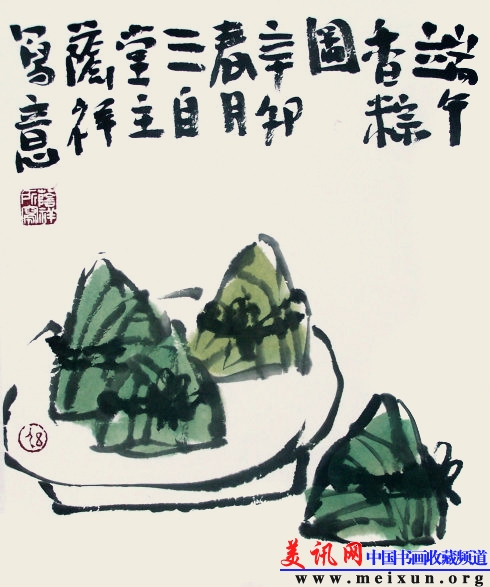 端午
香粽
圖
辛卯
春月
三自
堂主
蔭祥
寫意
蔭祥
所寫
美讯网 中国书画收藏频道
www.meixun.org